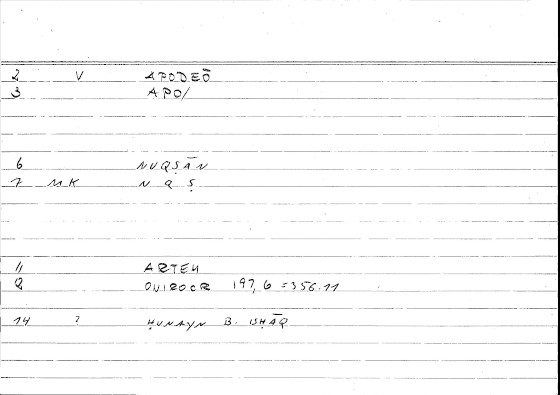 2 V APODEŌ
3 APO/
6 NUQṢĀN
7 MK N Q Ṣ
11 ARTEM
12 ONIROCR 197,6 = 356.11
14 ? ḤUNAYN B. ISḤĀQ